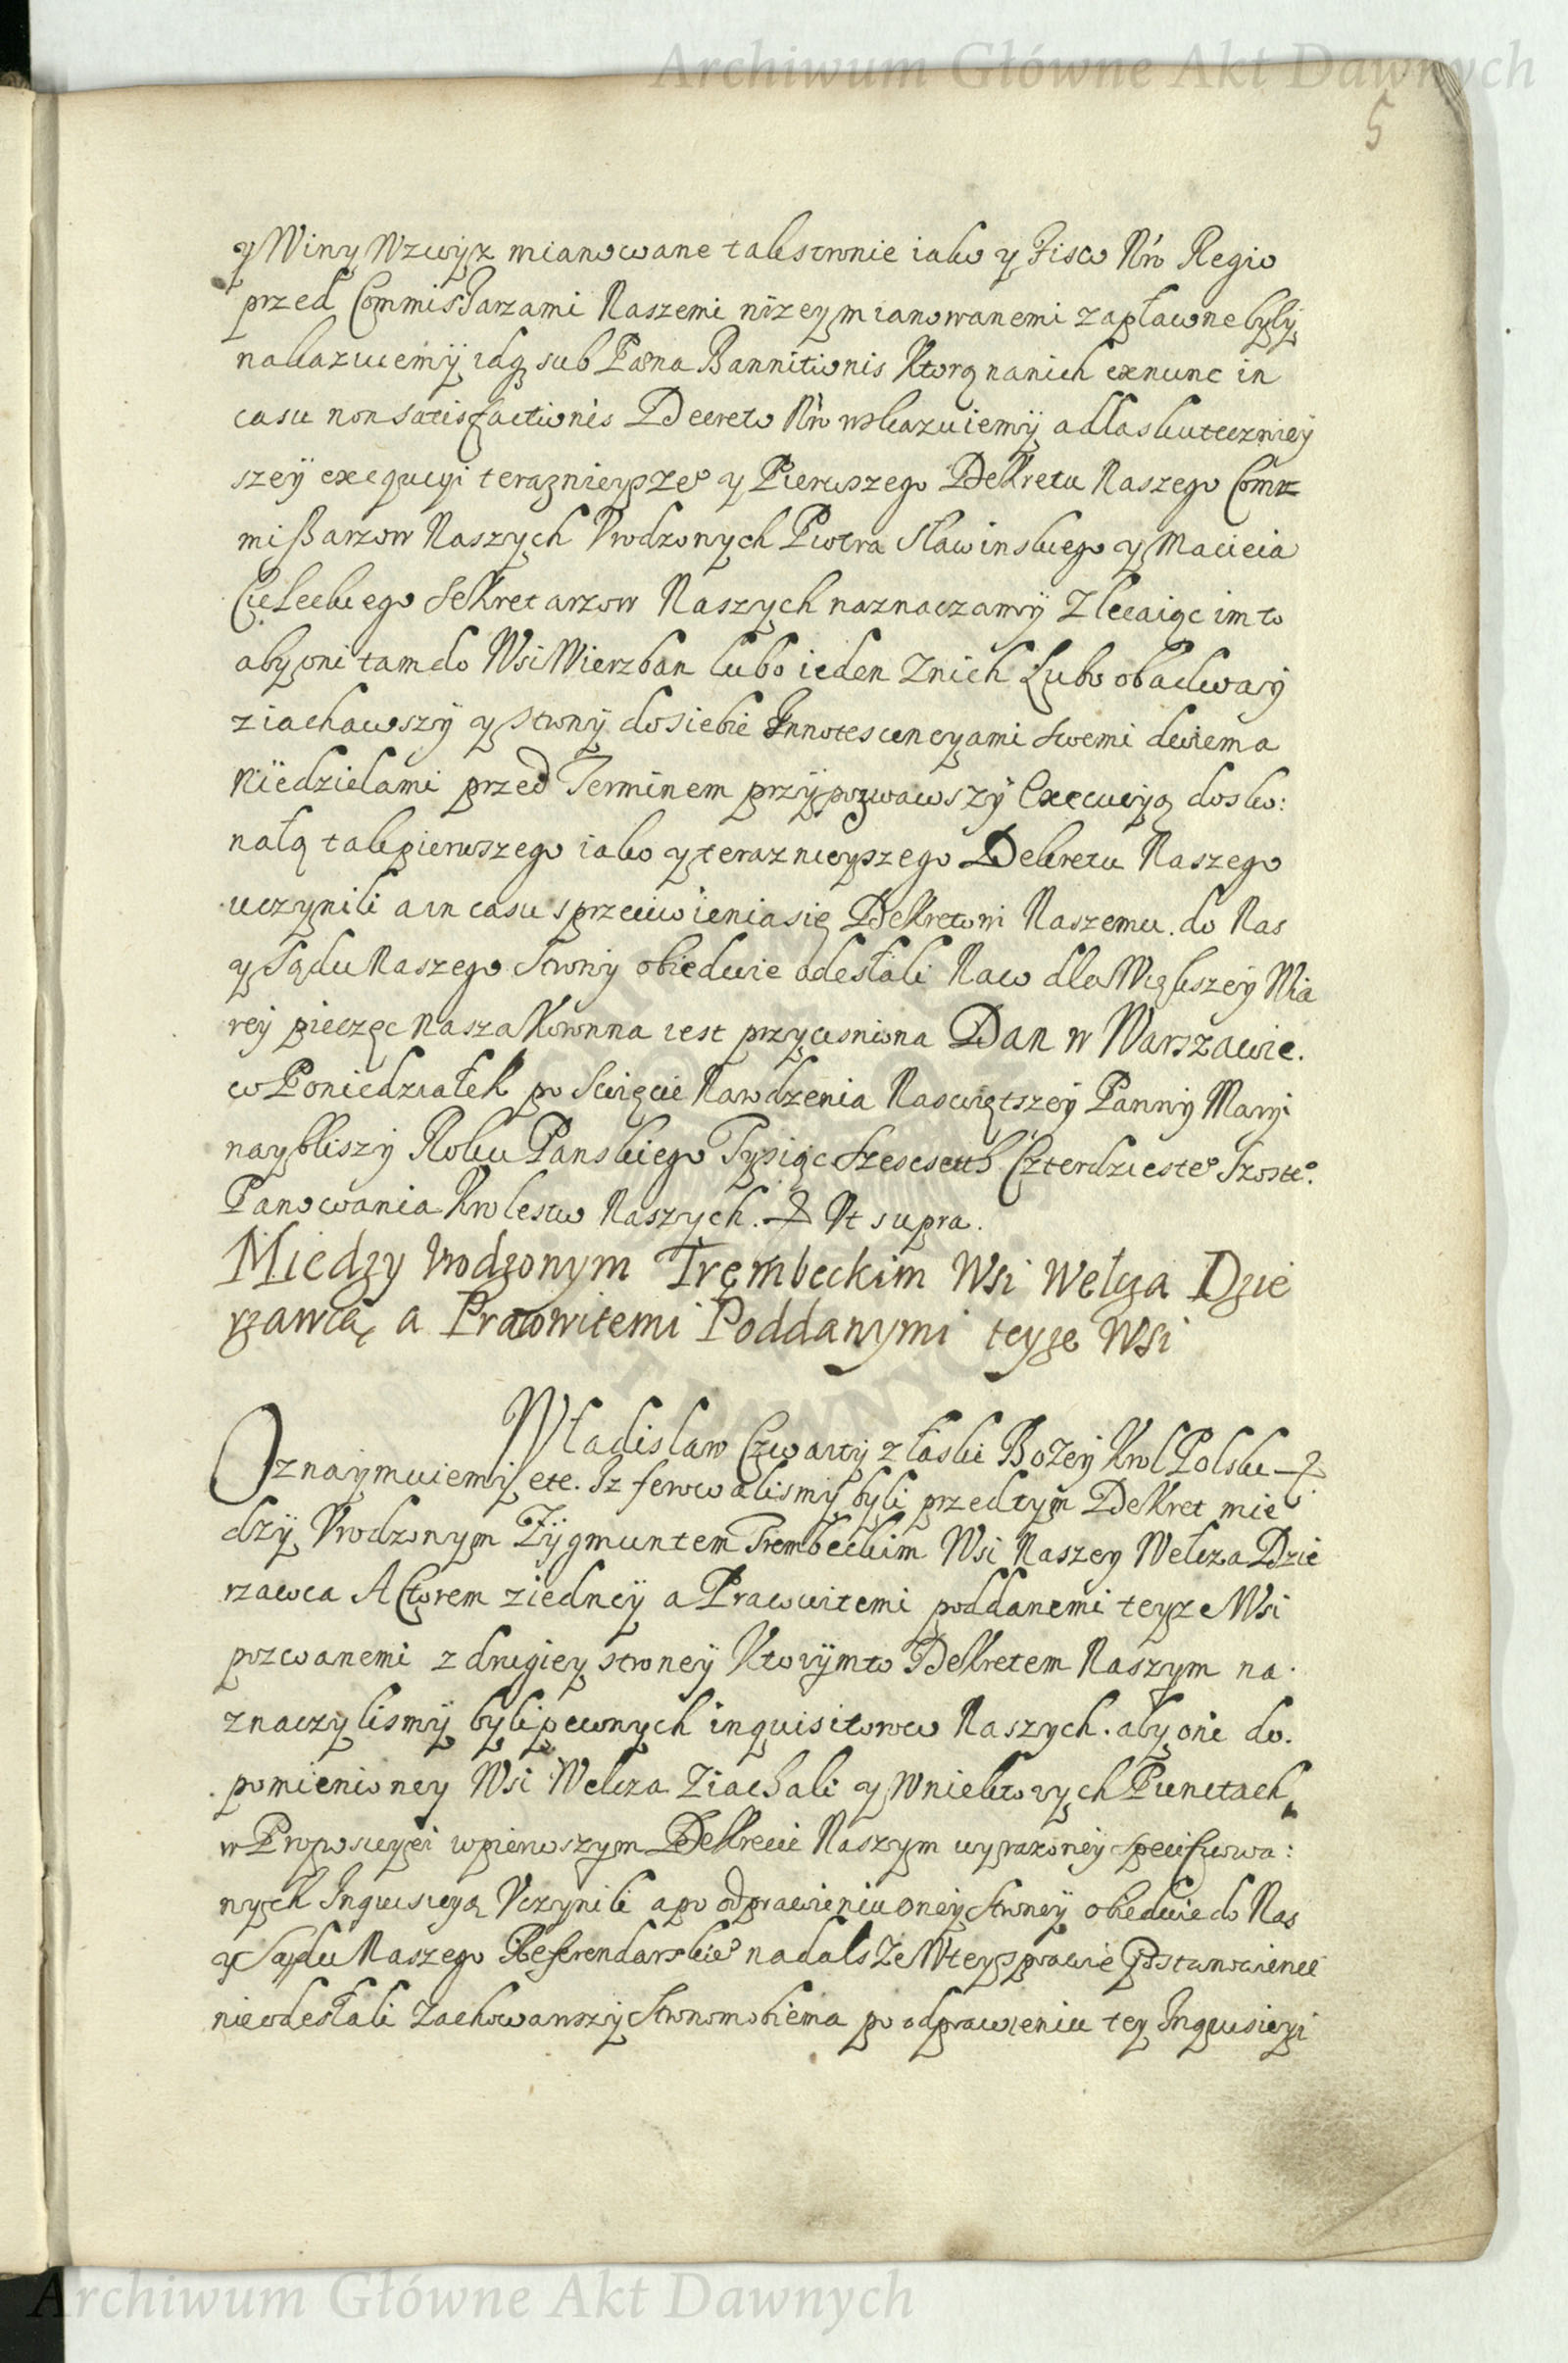 Archiwum Główne Akt Dawnych
5
y Winy Wzwysz mianowane tak stronie iako y Fisco Nro Regio
przed Commissarzami Naszemi nizey mianowanemi zapłacone były
nakazuiemy idq sub Paena Bannitionis Ktorą nanich exnunc in
casu non satisfactionis Decreto Nro wskazuiemy adla skuteczniey
szey exequcyi teraznieysze° y Pierwszego Dekretu Naszego Com
missarzow Naszych Vrodzonych Piotra Sławinskiego y Macieia
Cieleckiego Sekretarzow Naszych naznaczamy Zlecaiąc im to
aby oni tam do Wsi Wierzban lubo ieden Znich Lubo obadway
ziachawszy y strony do siebie Innotescencyami swemi dwiema
Niedzielami przed Terminem przypozwawszy Execucyą dosko:
nałą tak pierwszego iako y teraznieyszego Dekretu Naszego
uczynili a in casu sprzeciwienia się Dekretowi Naszemu. do Nas
y Sądu Naszego Strony obiedwie odesłali Naco dla Większey Wia
rey pieczęc Nasza Koronna iest przycisniona Dan w Warszawie.
w Poniedziałek po Swięcie Narodzenia Naswiętszey Panny Maryi
naybliszy Roku Panskiego Tysiąc Szescseth Czterdzieste° Szoste°.
Panowania Krolestw Naszych. Ut supra.
Miedzy Vrodzonym Trembeckim Wsi Wełcza Dzie
rzawcą a Pracowitemi Poddanymi teyze Wsi
Władisław Czwarty z łaski Bozey Krol Polski
Oznaymuiemy etc. Iz ferowalismy byli przedtym Dekret mie
dzy Vrodzonym Zygmuntem Trembeckim Wsi Naszey Wełcza Dzie
rzawca Actorem ziedney a Pracowitemi poddanemi teyze Wsi
pozwanemi z drugiey stroney Ktorymto Dekretem Naszym na
znaczylismy byli pewnych inquisitorow Naszych. aby oni do.
pomienioney Wsi Welcza Ziachali y Wniektorych Punctach
w Propositiei wpierwszym Dekrecie Naszym wyrazoney specifikowa:
nych Inquisicyą Vczynili a po odprawieniu oney Stroney obiedwie do Nas
y Sądu Naszego Referendarskie° nadalsze Wtey sprawie Postanowienie
nieodesłali Zachowawszy Stronom obiema po odprawieniu tey Inquisicyi
Archiwum Główne Akt Dawnych